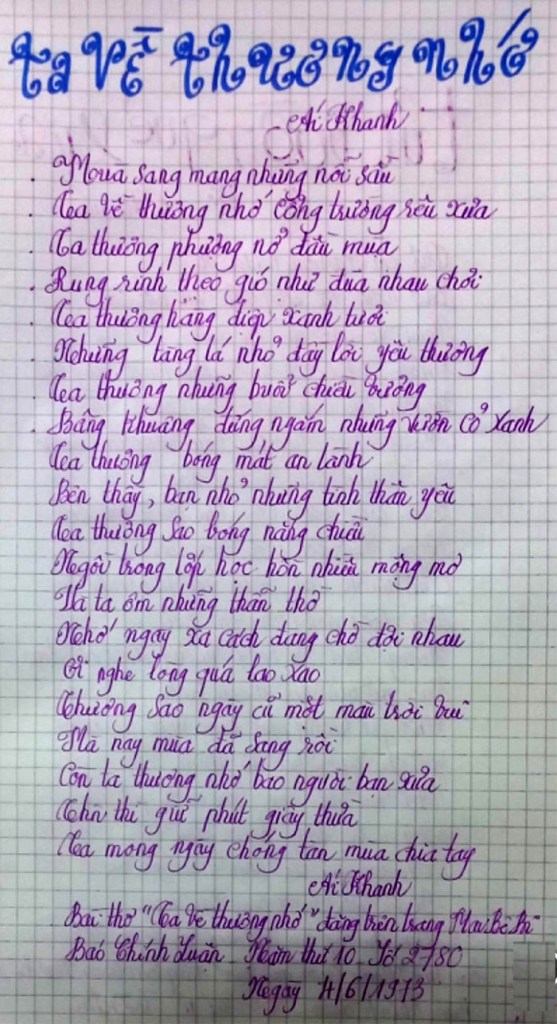 Ta về thương nhớ
Ái Khanh
. Mưa sang mang những nỗi sầu
. Ta về thương nhớ cổng trường rêu xưa
. Ta thương phượng nở đầu mùa
. Rung rinh theo gió như đùa nhau chơi
. Ta thương hàng điệp xanh tươi
. Những tàng lá nhỏ đầy lời yêu thương
. Ta thương những buổi chiều buông
. Bâng khuâng đứng ngắm những vườn cỏ xanh
Ta thương bóng mát an lành
Bên thầy, bạn nhỏ những tình thân yêu
Ta thương sao bóng nắng chiều
Ngồi trong lớp học hồn nhiên mộng mơ
Và ta ôm những thẫn thờ
Nhớ ngày xa cách đang chờ đợi nhau
Ơi nghe lòng quá lao xao
Thương sao ngày cũ một màu trời vui
Mà nay mùa đã sang rồi
Còn ta thương nhớ bao người bạn xưa
Thôi thì giữ phút giây thừa
Ta mong ngày chóng tàn mùa chia tay
Ái Khanh
Bài thơ "Ta về thương nhớ" đăng trên trang Mai Bê Bi
Báo Chính Luận Năm thứ 10 Số 2780
Ngày 4/6/1973